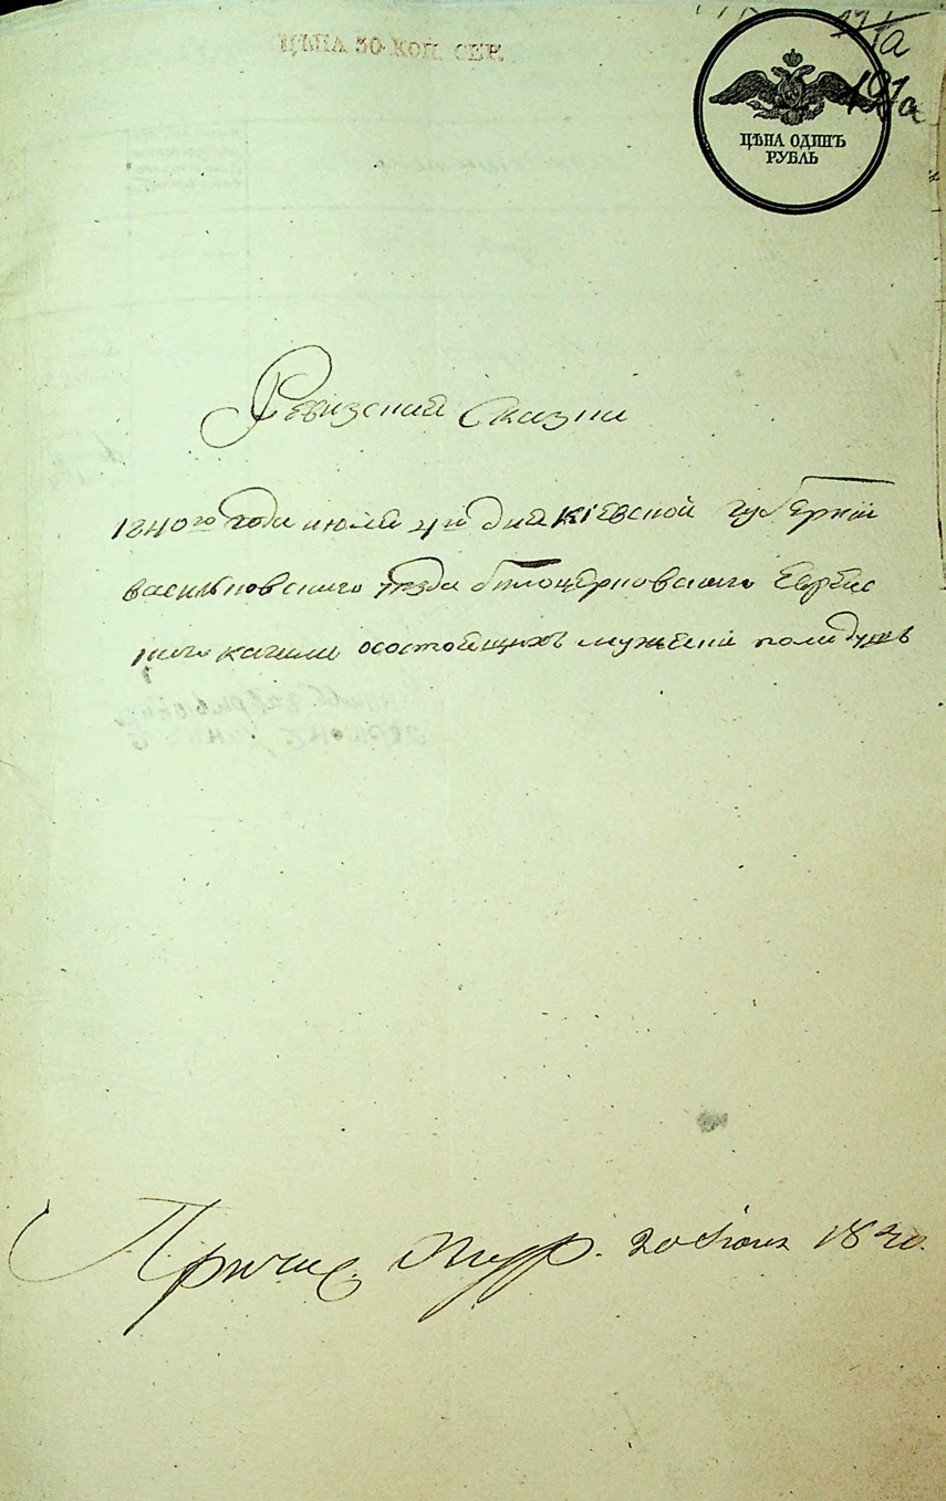 ЦѢНА 30 КОП. СЕР.
191а
ЦѢНА ОДИНЪ
РУБЛЬ
Ревизский Сказки
1840го года июля 4го дня кіевской губерніи
васильковского уезда белоцерковского Еврейс
кого кагала осостоящихъ мужеска пола душъ
20 1840.